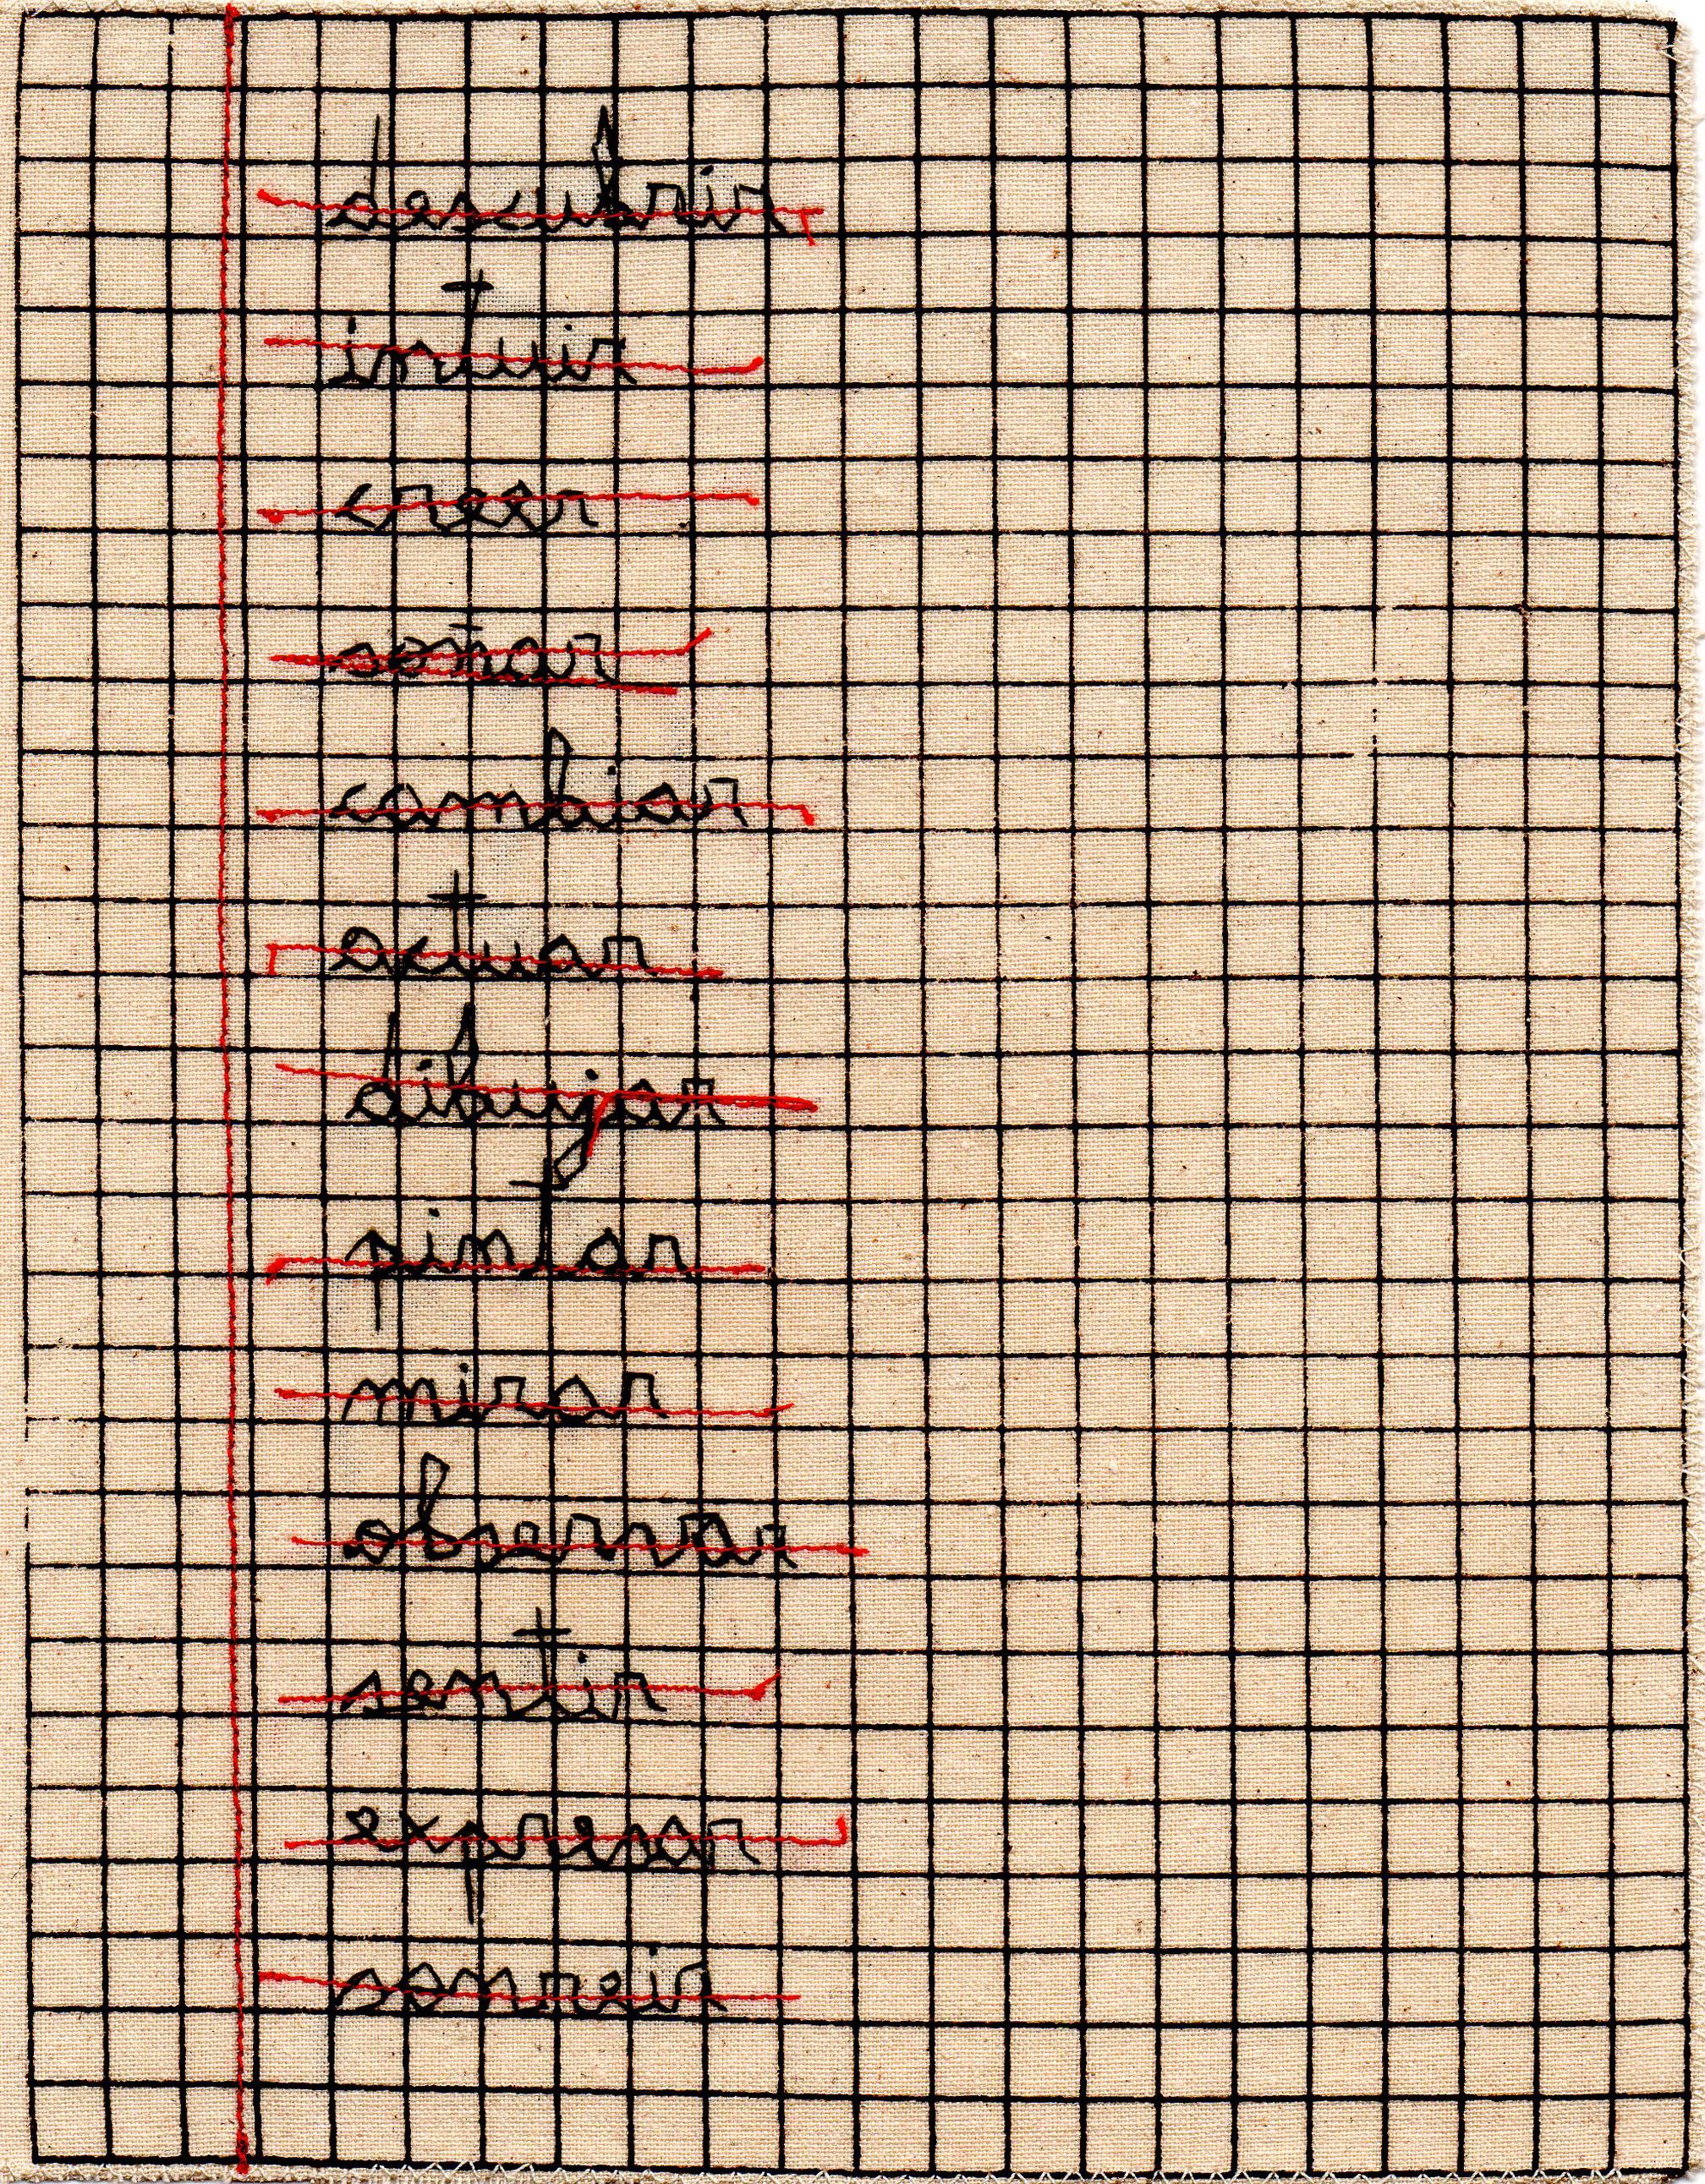 descubrir
intuir
creer
soñar
cambiar
actuar
dibujar
pintar
mirar
observar
sentir
expresar
sonreir